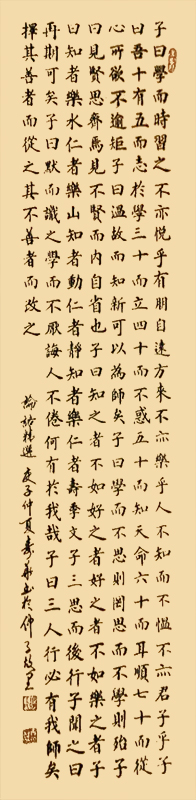 子曰學而時習之不亦悅乎有朋自遠方來不亦樂乎人不知而不慍不亦君子乎子
曰吾十有五而志於學三十而立四十而不惑五十而知天命六十而耳順七十而從
心所欲不逾矩子曰溫故而知新可以為師矣子曰學而不思則罔思而不學則殆子
曰見賢思齊焉見不賢而內自省也子曰知之者不如好之者好之者不如樂之者子
曰知者樂水仁者樂山知者動仁者靜知者樂仁者壽季文子三思而後行子聞之曰
再斯可矣子曰默而識之學而不厭誨人不倦何有於我哉子曰三人行必有我師矣
擇其善者而從之其不善者而改之
論語精選 庚子仲夏 書於仲子故里